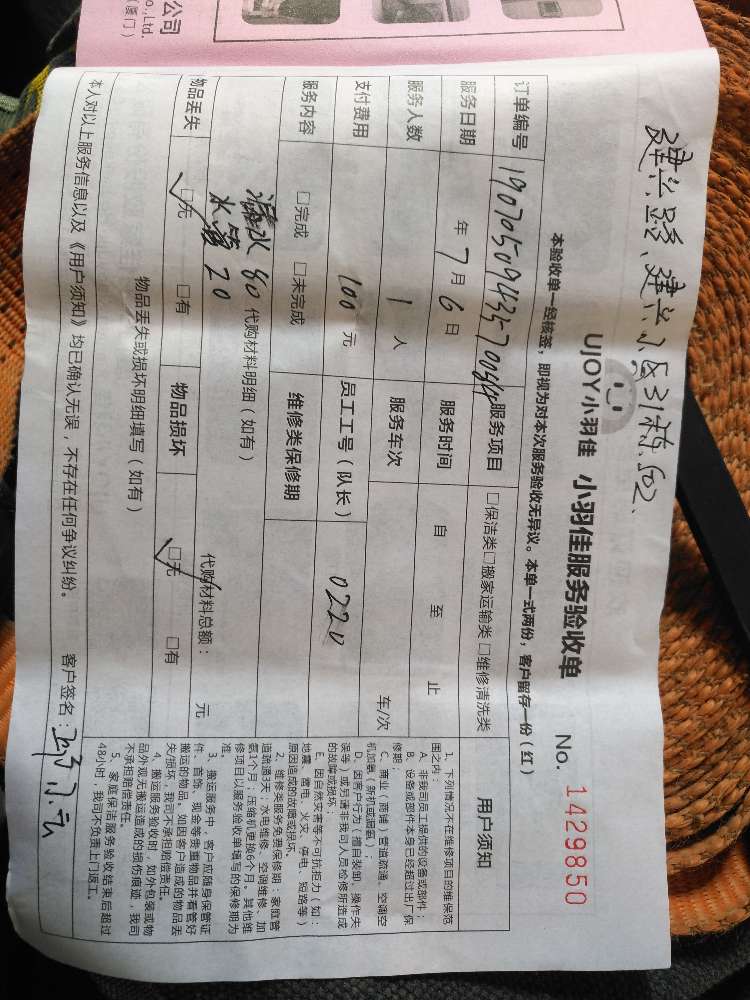 公司
o.,Ltd.
厦门）
建兴路、建兴小区
UJOY小羽佳 小羽佳服务验收单
No. 1429850
本验收单一经核签，即视为对本次服务验收无异议。本单一式两份，客户留存一份（红）
订单编号
服务项目 □保洁类□搬家运输类□维修清洗类
服务日期 年 7 月 6 日 服务时间 自 至 止
服务人数 1 人 服务车次 车/次
支付费用 100 元 员工工号（队长） 0220
服务内容 □完成 □未完成 维修类保修期
漏水 80 代购材料明细（如有）
水管 20
代购材料总额： 元
物品丢失 □无 □有 物品损坏 □无 □有
物品丢失或损坏明细填写（如有）
本人对以上服务信息以及《用户须知》均已确认无误，不存在任何争议纠纷。 客户签名：
用户须知
1、下列情况不在维修项目的维保范
围之内：
A、非我司员工提供的设备或部件；
B、设备或部件本身已经超过出厂保
修期；
C、商业（商铺）管道疏通、空调空
机加氨（新机或漏氨）；
D、因客户行为（擅自装卸、操作失
误等）或另请非我司人员检修所造成
的故障或损坏；
E、因自然灾害等不可抗拒力（如：
地震、雷电、火灾、停电、短路等）
原因造成的故障或损坏。
2、维修类服务免费保修期：家庭管
道疏通3天，水电维修、空调维修、加
氨1个月，压缩机更换6个月。其他维
修项目以服务验收单填写的保修期为
准。
3、搬运服务中，客户应随身保管证
件、首饰、现金等贵重物品并看管好
搬运的物品，如因客户造成的物品丢
失/损坏，我司不承担赔偿责任。
4、搬运服务验收时，如外包装或物
品外观无搬运造成的损伤痕迹，我司
不承担赔偿责任。
5、家庭保洁服务验收结束后超过
48小时，我司不负责上门返工。